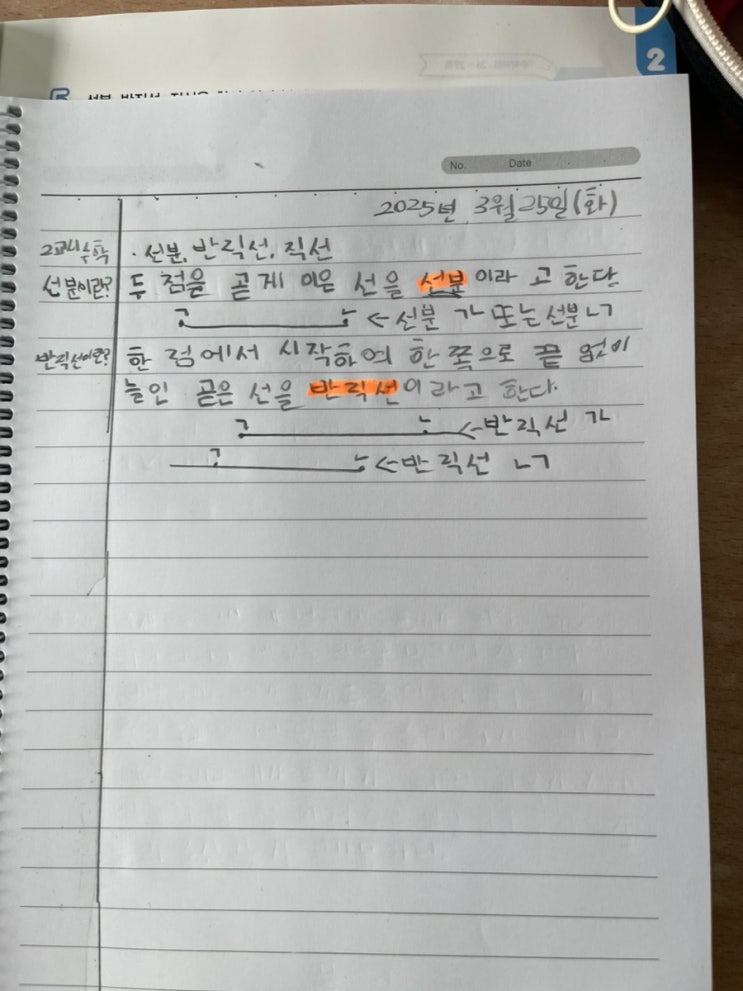 2
No. Date
2025년 3월 25일(화)
2교시 수학 · 선분, 반직선, 직선
선분이란? 두 점을 곧게 이은 선을 선분이라고 한다.
ㄱ ㄴ ← 선분 ㄱㄴ 또는 선분 ㄴㄱ
반직선이란? 한 점에서 시작하여 한 쪽으로 끝 없이
늘인 곧은 선을 반직선이라고 한다.
ㄱ ㄴ ←반직선 ㄱㄴ
ㄱ ㄴ ←반직선 ㄴㄱ